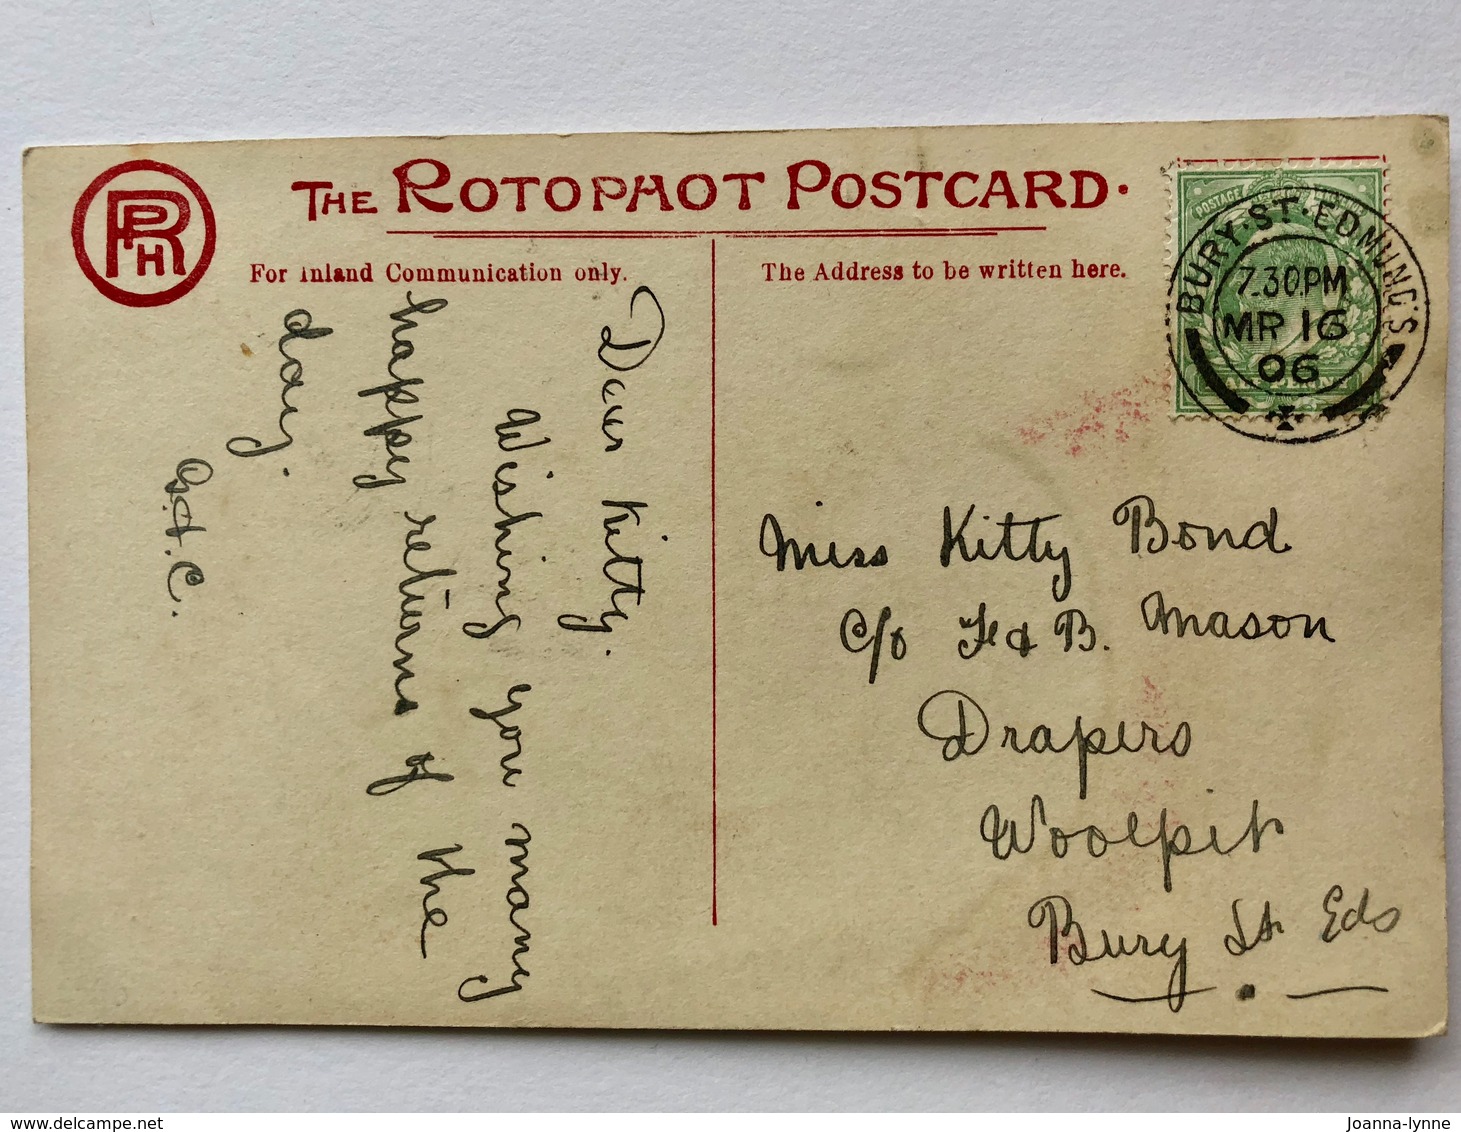 RPH
THE ROTOPHOT POSTCARD.
For Inland Communication only.
The Address to be written here.
BURY·ST·EDMUND'S
7.30PM
MR 16
06
Dear Kitty.
Wishing you many
happy returns of the
day.
G.H.C.
Miss Kitty Bond
c/o F & B. Mason
Drapers
Woolpit
Bury St Eds
delcampe.net
Joanna-lynne